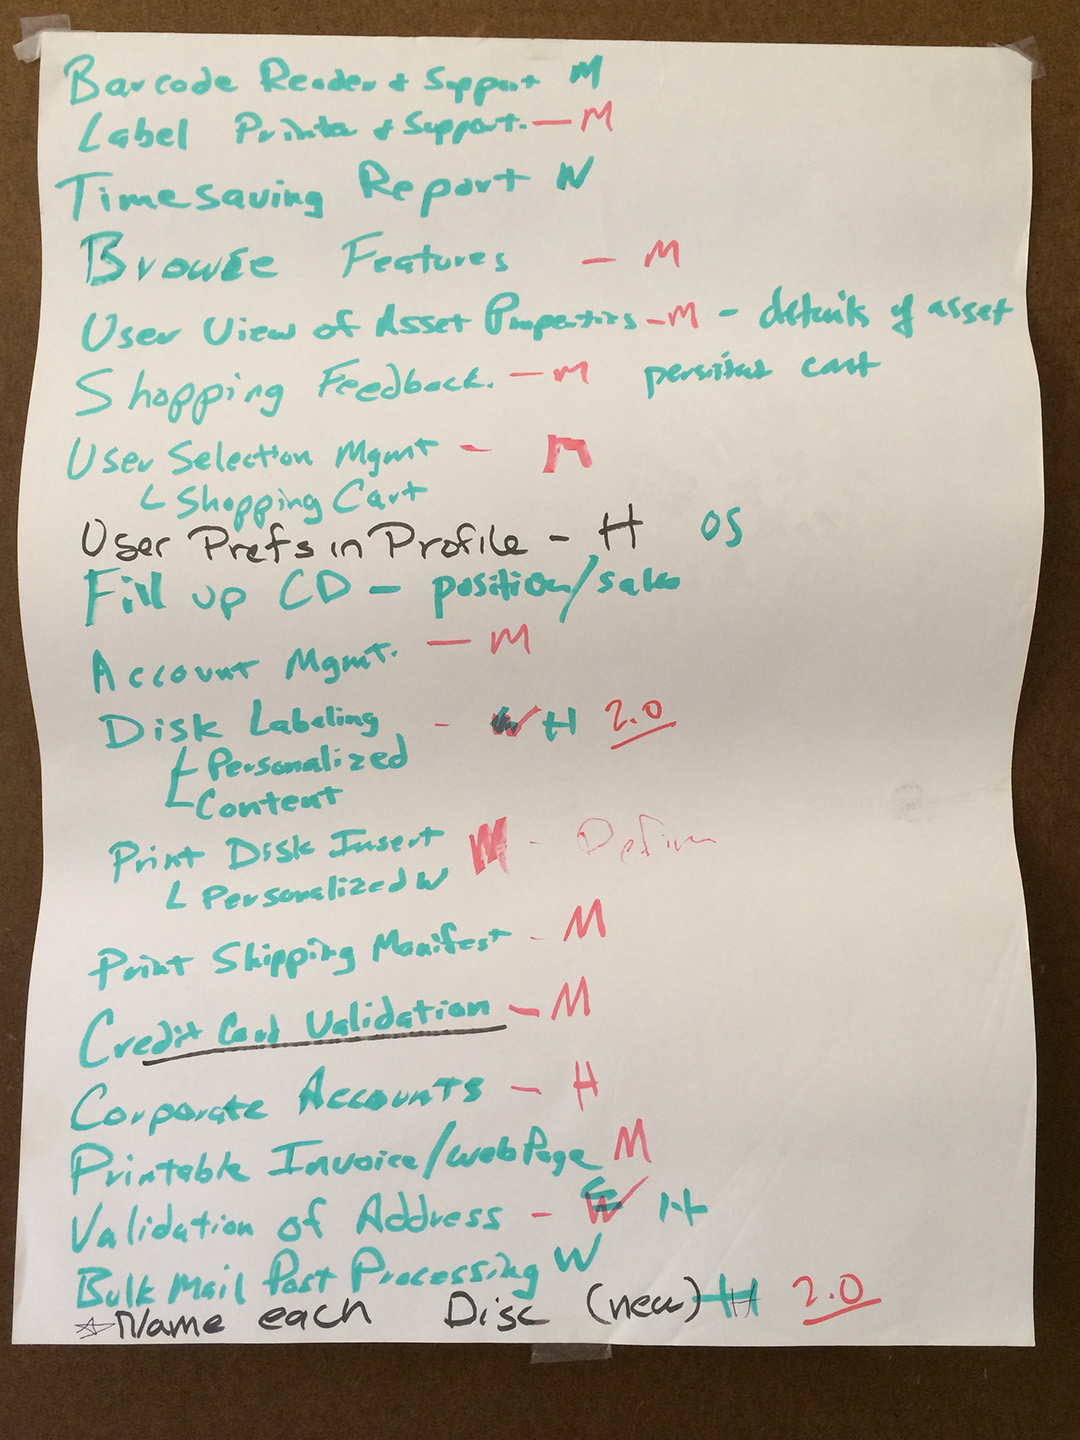 Barcode Reader + Support M
Label Printer + Support. — M
Timesaving Report W
Browse Features — M
User View of Asset Properties — M - details of asset
Shopping Feedback. — M persistat cart
User Selection Mgmt — M
└ Shopping Cart
User Prefs in Profile - H OS
Fill up CD - position/sales
Account Mgmt. — M
Disk Labeling - H 2.0
├ Personalized
└ Content
Print Disk Insert M - Define
└ Personalized W
Print Shipping Manifest - M
Credit Card Validation - M
Corporate Accounts - H
Printable Invoice/web Page M
Validation of Address - H
Bulk Mail Post Processing W
☆ Name each Disc (new) H 2.0